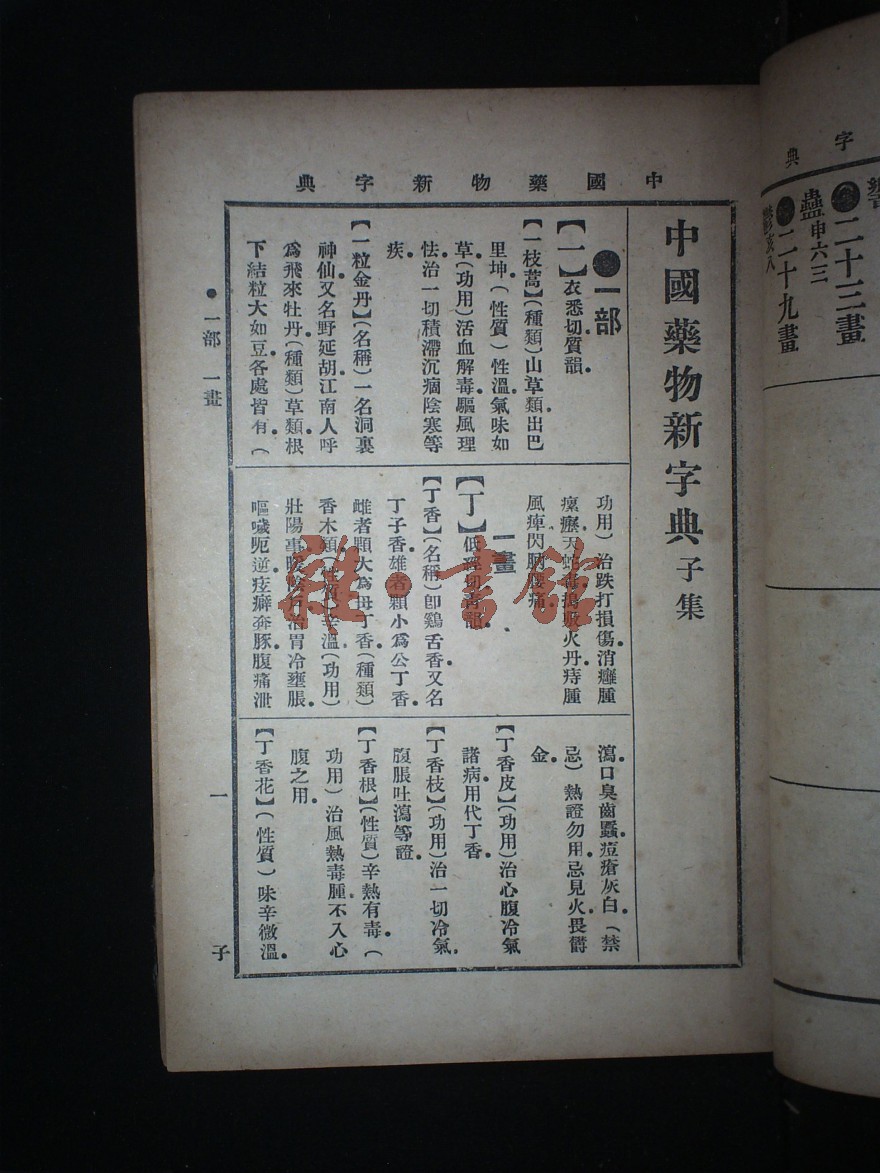 中國藥物新字典
中國藥物新字典 子集
●一部
【一】衣悉切質韻。
【一枝蒿】(種類)山草類出巴
里坤。(性質)性溫。氣味如
草(功用)活血解毒驅風理
怯治一切積滯沉痼陰寒等
疾。
【一粒金丹】(名稱)一名洞裏
神仙又名野延胡江南人呼
爲飛來牡丹(種類)草類根
下結粒大如豆各處皆有。(
功用)治跌打損傷消癰腫
瘰癧天蛇毒
火丹痔腫
風痺閃腰痛。
一畫
【丁】低經切青韻。
【丁香】(名稱)卽鷄舌香又名
丁子香雄者顆小爲公丁香。
雌者顆大爲母丁香。(種類)
香木類(性質)辛溫(功用)
壯陽事暖陰戶治胃冷壅脹。
嘔噦呃逆。痃癖奔豚。腹痛泄
瀉口臭齒䘌。痘瘡灰白。(禁
忌)熱證勿用。忌見火。畏鬱
金。
【丁香皮】(功用)治心腹冷氣
諸病。用代丁香。
【丁香枝】(功用)治一切冷氣。
腹脹吐瀉等證。
【丁香根】(性質)辛熱有毒。(
功用)治風熱毒腫。不入心
腹之用。
【丁香花】(性質)味辛微溫。
●一部 一畫
一
子
字典
●二十三畫
蠱申六三
●二十九畫
雜·書館